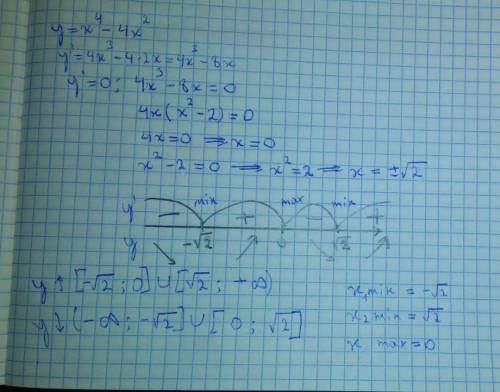 y=x⁴-4x²
y'=4x³-4·2x=4x³-8x
y'=0; 4x³-8x=0
4x(x²-2)=0
4x=0 ⟹ x=0
x²-2=0 ⟹ x²=2 ⟹ x=±√2
min max min
y' - + - +
y -√2 0 √2
y↑[-√2; 0]∪[√2; +∞)
y↓(-∞; -√2]∪[0; √2]
x₁min = -√2
x₂min = √2
x max=0